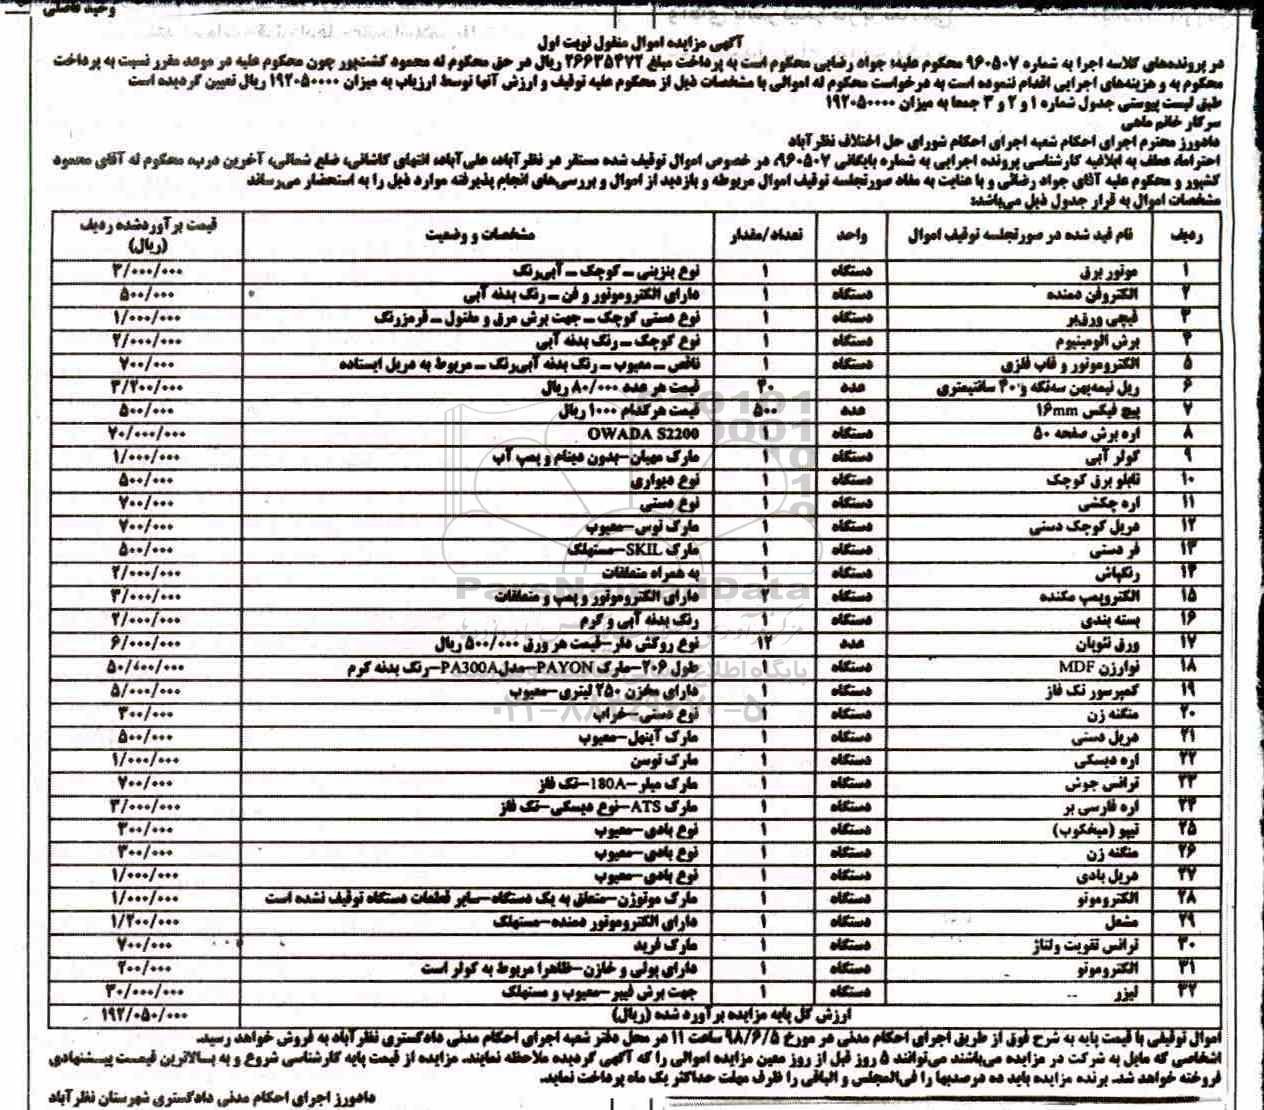 وحید فاضلی
آگهی مزایده اموال منقول نوبت اول
در پرونده‌های کلاسه اجرا به شماره ۹۶۰۵۰۷ محکوم علیه: جواد رضایی محکوم است به پرداخت مبلغ ۲۶۶۳۵۴۷۲ ریال در حق محکوم له محمود کشت‌پور چون محکوم علیه در موعد مقرر نسبت به پرداخت
محکوم به و هزینه‌های اجرایی اقدام ننموده است به درخواست محکوم له اموالی با مشخصات ذیل از محکوم علیه توقیف و ارزش آنها توسط ارزیاب به میزان ۱۹۲۰۵۰۰۰۰ ریال تعیین گردیده است
طبق لیست پیوستی جدول شماره ۱ و ۲ و ۳ جمعا به میزان ۱۹۲۰۵۰۰۰۰
سرکار خانم ماهی
دادورز محترم اجرای احکام شعبه اجرای احکام شورای حل اختلاف نظرآباد
احتراما، عطف به ابلاغیه کارشناسی پرونده اجرایی به شماره بایگانی ۹۶۰۵۰۷، در خصوص اموال توقیف شده مستقر در نظرآباد، علی‌آباد، انتهای کاشانی، ضلع شمالی، آخرین درب، محکوم له آقای محمود
کشپور و محکوم علیه آقای جواد رضائی و با عنایت به مفاد صورتجلسه توقیف اموال مربوطه و بازدید از اموال و بررسی‌های انجام پذیرفته موارد ذیل را به استحضار می‌رساند
مشخصات اموال به قرار جدول ذیل می‌باشد:
ردیف نام قید شده در صورتجلسه توقیف اموال واحد تعداد/مقدار مشخصات و وضعیت قیمت برآوردشده ردیف (ریال)
۱ موتور برق دستگاه ۱ نوع بنزینی ــ کوچک ــ آبی‌رنگ ۳/۰۰۰/۰۰۰
۲ الکتروفن دمنده دستگاه ۱ دارای الکتروموتور و فن ــ رنگ بدنه آبی ۵۰۰/۰۰۰
۳ قیچی ورق‌بر دستگاه ۱ نوع دستی کوچک ــ جهت برش مرق و مفتول ــ قرمزرنگ ۱/۰۰۰/۰۰۰
۴ برش آلومینیوم دستگاه ۱ نوع کوچک ــ رنگ بدنه آبی ۲/۰۰۰/۰۰۰
۵ الکتروموتور و قاب فلزی دستگاه ۱ ناقص ــ معیوب ــ رنگ بدنه آبی‌رنگ ــ مربوط به دریل ایستاده ۷۰۰/۰۰۰
۶ ریل نیمه‌پهن سه‌تکه و ۴۰ سانتیمتری عدد ۴۰ قیمت هر عدد ۸۰/۰۰۰ ریال ۳/۲۰۰/۰۰۰
۷ پیچ فیکس ۱۶mm عدد ۵۰۰ قیمت هرکدام ۱۰۰۰ ریال ۵۰۰/۰۰۰
۸ اره برش صفحه ۵۰ دستگاه ۱ OWADA S2200 ۷۰/۰۰۰/۰۰۰
۹ کولر آبی دستگاه ۱ مارک مهیان-بدون دینام و پمپ آب ۱/۰۰۰/۰۰۰
۱۰ تابلو برق کوچک دستگاه ۱ نوع دیواری ۵۰۰/۰۰۰
۱۱ اره چکشی دستگاه ۱ نوع دستی ۷۰۰/۰۰۰
۱۲ دریل کوچک دستی دستگاه ۱ مارک توس-معیوب ۷۰۰/۰۰۰
۱۳ فر دستی دستگاه ۱ مارک SKIL-مستهلک ۵۰۰/۰۰۰
۱۴ رنگپاش دستگاه ۱ به همراه متعلقات ۲/۰۰۰/۰۰۰
۱۵ الکتروپمپ مکنده دستگاه ۲ دارای الکتروموتور و پمپ و متعلقات ۳/۰۰۰/۰۰۰
۱۶ بسته بندی دستگاه ۱ رنگ بدنه آبی و کرم ۲/۰۰۰/۰۰۰
۱۷ ورق نئوپان عدد ۱۲ نوع روکش دار-قیمت هر ورق ۵۰۰/۰۰۰ ریال ۶/۰۰۰/۰۰۰
۱۸ نوارزن MDF دستگاه ۱ طول ۲۰۶-مارک PAYON-مدلPA300A-رنگ بدنه کرم ۵۰/۰۰۰/۰۰۰
۱۹ کمپرسور تک فاز دستگاه ۱ دارای مخزن ۲۵۰ لیتری-معیوب ۵/۰۰۰/۰۰۰
۲۰ منگنه زن دستگاه ۱ نوع دستی-خراب ۳۰۰/۰۰۰
۲۱ دریل دستی دستگاه ۱ مارک آینهل-معیوب ۵۰۰/۰۰۰
۲۲ اره دیسکی دستگاه ۱ مارک توسن ۱/۰۰۰/۰۰۰
۲۳ ترانس جوش دستگاه ۱ مارک میلر-180A-تک فاز ۷۰۰/۰۰۰
۲۴ اره فارسی بر دستگاه ۱ مارک ATS-نوع دیسکی-تک فاز ۳/۰۰۰/۰۰۰
۲۵ تیپو (میخکوب) دستگاه ۱ نوع بادی-معیوب ۳۰۰/۰۰۰
۲۶ منگنه زن دستگاه ۱ نوع بادی-معیوب ۳۰۰/۰۰۰
۲۷ دریل بادی دستگاه ۱ نوع بادی-معیوب ۱/۰۰۰/۰۰۰
۲۸ الکتروموتو دستگاه ۱ مارک موتوژن-متعلق به یک دستگاه-سایر قطعات دستگاه توقیف نشده است ۱/۰۰۰/۰۰۰
۲۹ مشعل دستگاه ۱ دارای الکتروموتور دمنده-مستهلک ۱/۲۰۰/۰۰۰
۳۰ ترانس تقویت ولتاژ دستگاه ۱ مارک فرید ۷۰۰/۰۰۰
۳۱ الکتروموتو دستگاه ۱ دارای پولی و خازن-ظاهرا مربوط به کولر است ۲۰۰/۰۰۰
۳۲ لیزر دستگاه ۱ جهت برش فیبر-معیوب و مستهلک ۳۰/۰۰۰/۰۰۰
ارزش کل پایه مزایده برآورد شده (ریال) ۱۹۲/۰۵۰/۰۰۰
اموال توقیفی با قیمت پایه به شرح فوق از طریق اجرای احکام مدنی در مورخ ۹۸/۶/۵ ساعت ۱۱ در محل دفتر شعبه اجرای احکام مدنی دادگستری نظرآباد به فروش خواهد رسید.
اشخاصی که مایل به شرکت در مزایده می‌باشند می‌توانند ۵ روز قبل از روز معین مزایده اموالی را که آگهی گردیده ملاحظه نمایند. مزایده از قیمت پایه کارشناسی شروع و به بالاترین قیمت پیشنهادی
فروخته خواهد شد. برنده مزایده باید ده درصدبها را فی‌المجلس و الباقی را ظرف مهلت حداکثر یک ماه پرداخت نماید.
دادورز اجرای احکام مدنی دادگستری شهرستان نظرآباد